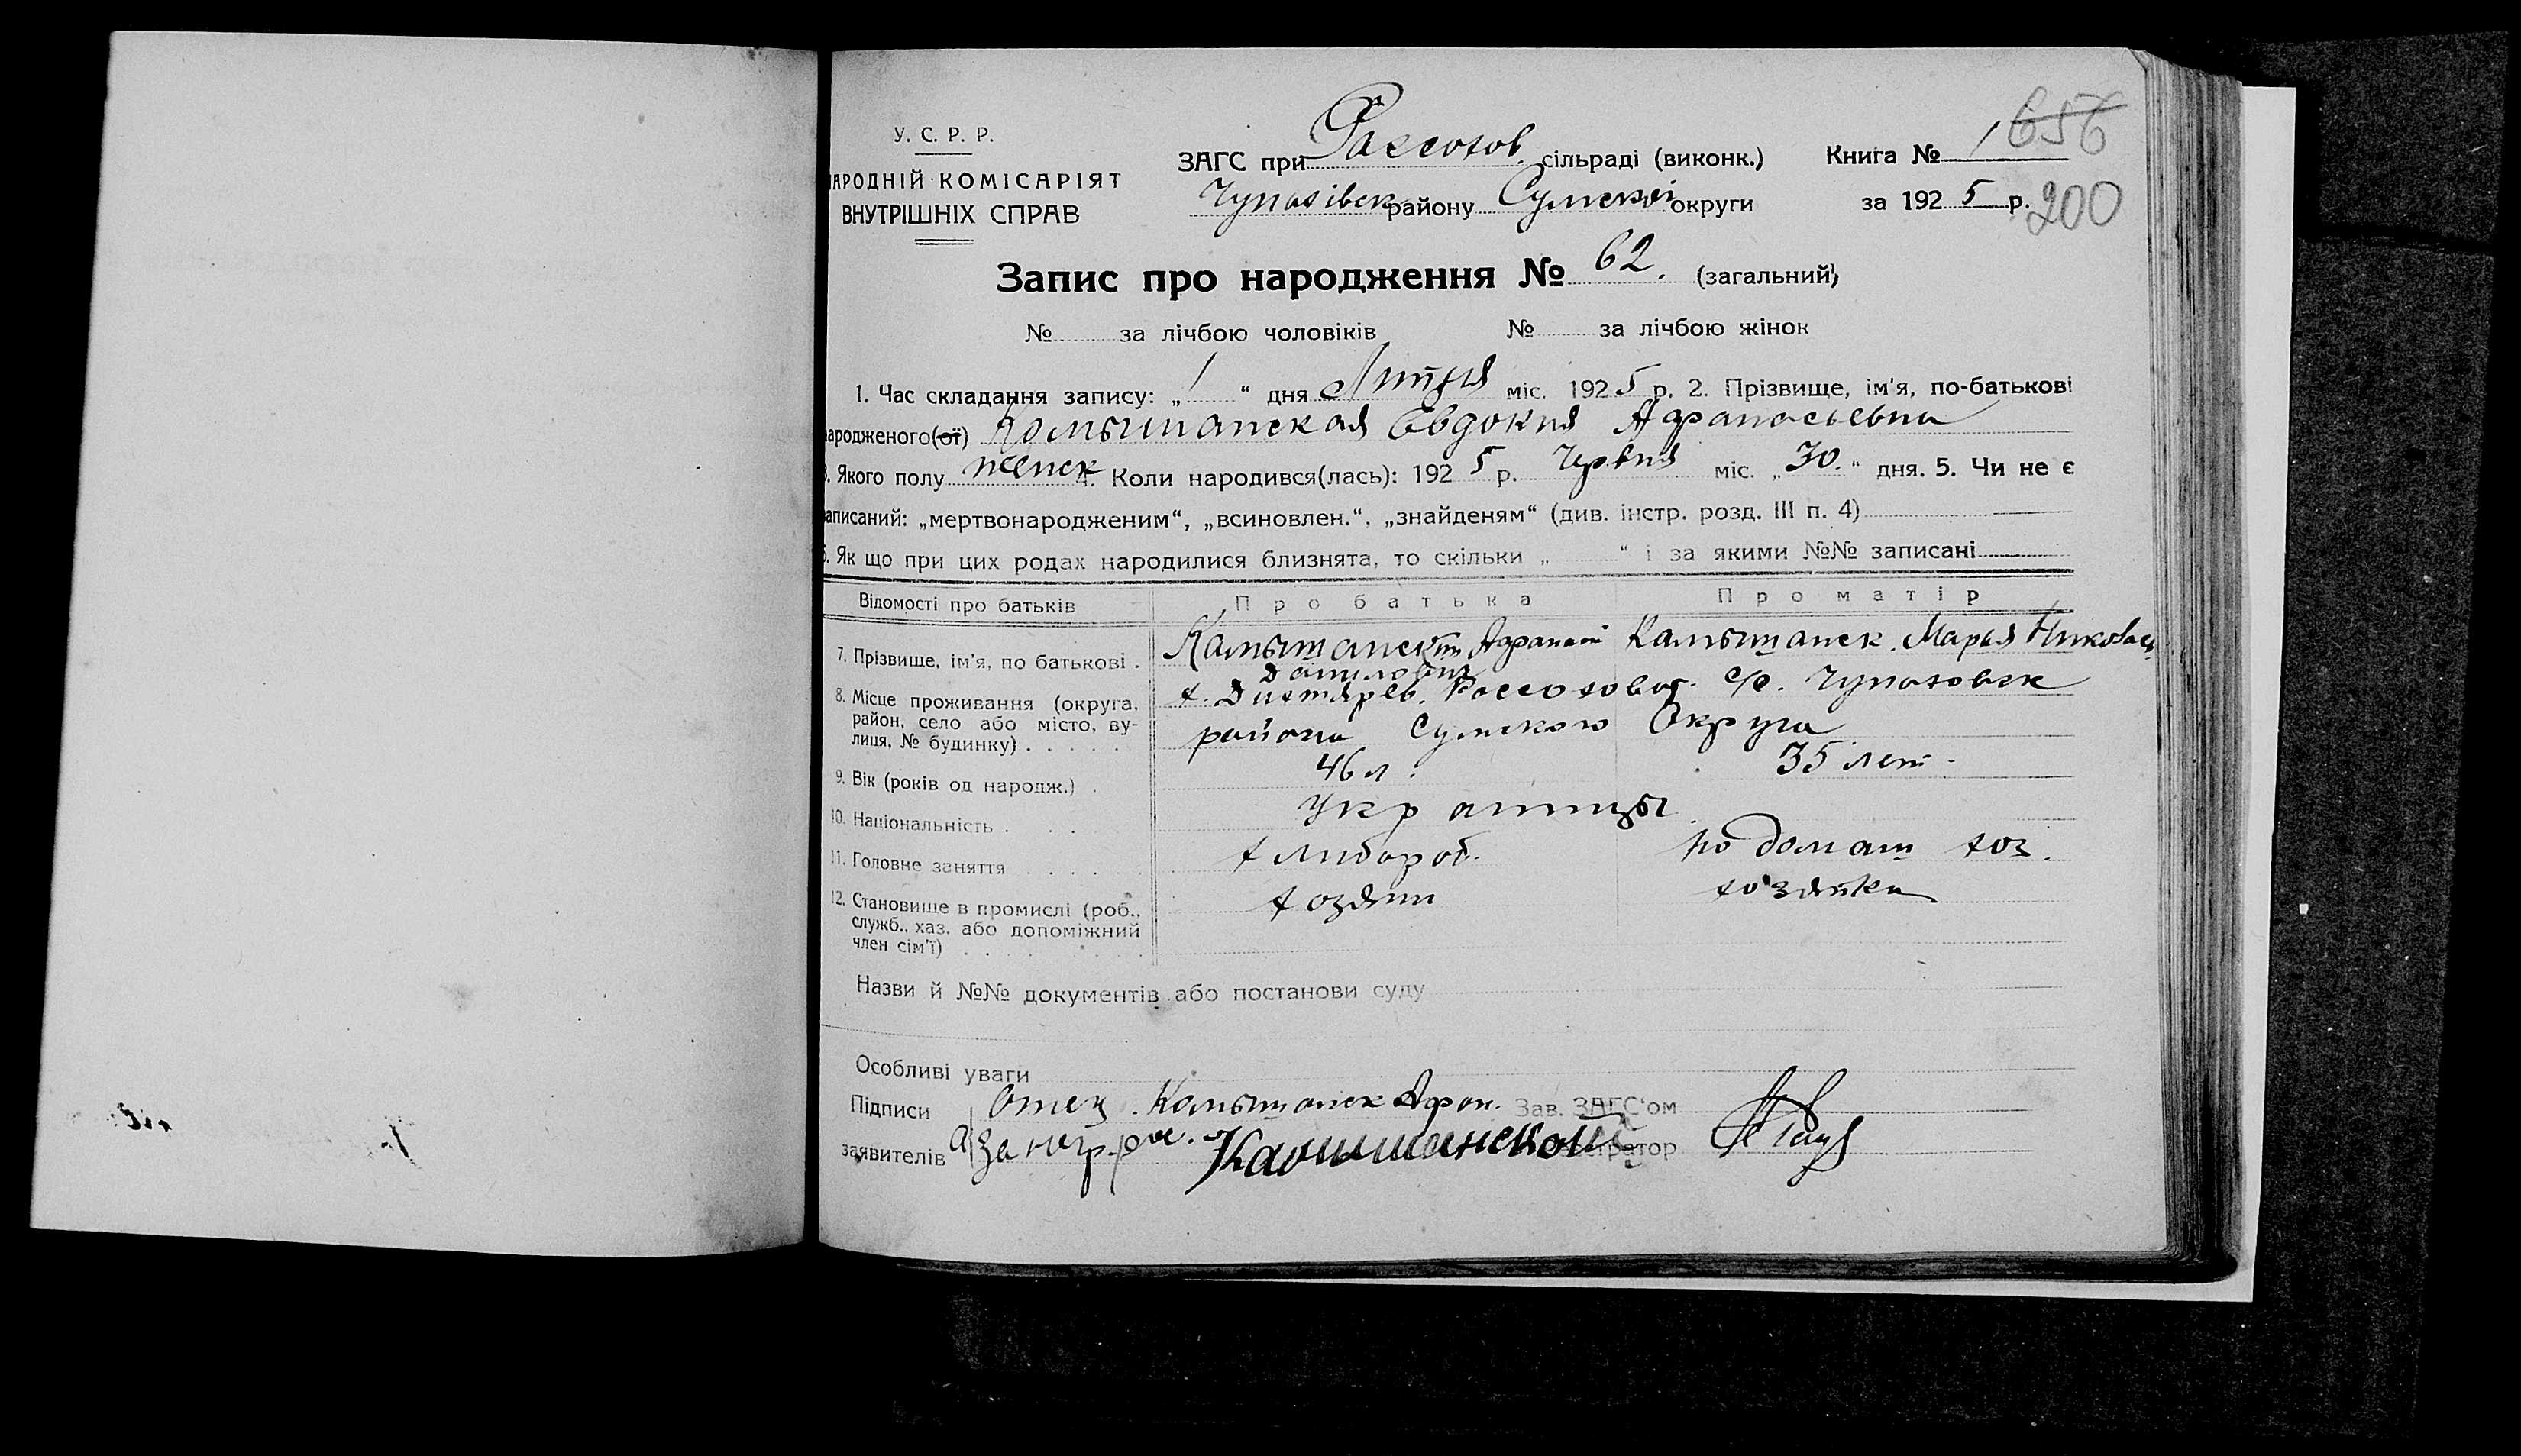 У. С. Р. Р.
АРОДНІЙ КОМІСАРІЯТ
ВНУТРІШНІХ СПРАВ
ЗАГС при Рассохов. сільраді (виконк.)
Чупахівск району Сумской округи
Книга № 1 656
за 1925 р. 200
Запис про народження № 62. (загальний)
№ за лічбою чоловіків № за лічбою жінок
1. Час складання запису: „ 1 “ дня Липня міс. 1925 р. 2. Прізвище, ім'я, по-батькові
народженого(ої) Камышанская Евдокия Афанасьевна
3. Якого полу женск 4. Коли народився(лась): 1925 р. Червня міс. „ 30. “ дня. 5. Чи не є
записаний: „мертвонародженим“, „всиновлен.“, „знайденям“ (див. інстр. розд. III п. 4)
6. Як що при цих родах народилися близнята, то скільки „ “ і за якими №№ записані
Відомості про батьків Про батька Про матір
7. Прізвище, ім'я, по батькові . Камышанский Афанасий Данилович Камышанск. Марья Николаев
8. Місце проживання (округа, х. Дихтярев. Россоховат. с/с. Чупаховск
район, село або місто, ву- района Сумского Округа
лиця, № будинку) . . . . .
9. Вік (років од народж.) . 46 л. 35 лет.
10. Національність . . . Украинцы
11. Головне заняття . . . . хлибороб. по домаш хоз.
12. Становище в промислі (роб., хозяин хозяйка
служб., хаз. або допоміжний
член сім'ї) . . . . . . . .
Назви й №№ документів або постанови суду
Особливі уваги
Підписи Отец. Камышанск Афан. Зав. ЗАГС'ом
заявителів а за негр. рос. Камышанской